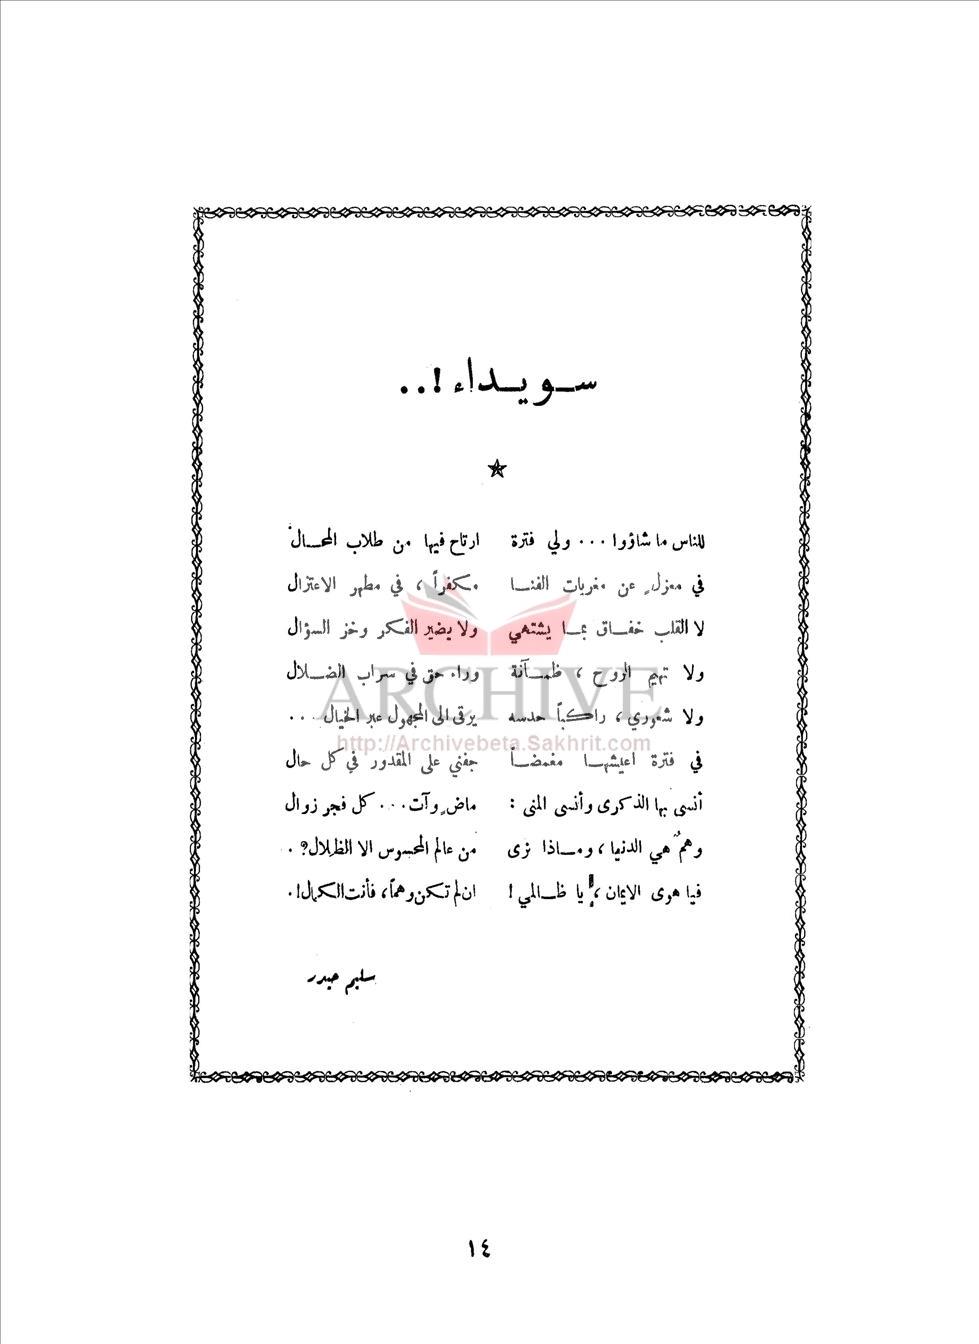 سويداء!..
للناس ما شاؤوا ... ولي فترة ارتاح فيها من طلاب المحال
في معزلٍ عن مغريات الفنا مكفراً ، في مطهر الاعتزال
لا القلب خفاق بما يشتهي ولا يضير الفكر وخز السؤال
ولا تهيم الروح ، ظمآنة وراء حق في سراب الضلال
ولا شعوري ، راكباً حدسه يرقى الى المجهول عبر الخيال ...
في فترة اعيشها مغمضاً جفني على المقدور في كل حال
أنسى بها الذكرى وأنسى المنى : ماضٍ وآت... كل فجر زوال
وهمٌ هي الدنيا ، وماذا نرى من عالم المحسوس الا الظلال؟ .
فيا هوى الايمان ، يا ظالمي ! ان لم تكن وهماً ، فأنت الكمال!.
سليم حيدر
ARCHIVE
http://Archivebeta.Sakhrit.com
١٤